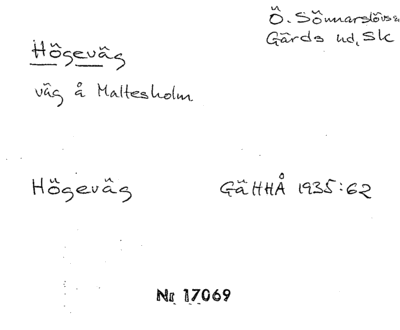 Ö. Sönnarslövs s
Gärds hd, Sk
Högeväg
väg å Maltesholm
Högeväg GäHHÅ 1935:62
Nr 17069